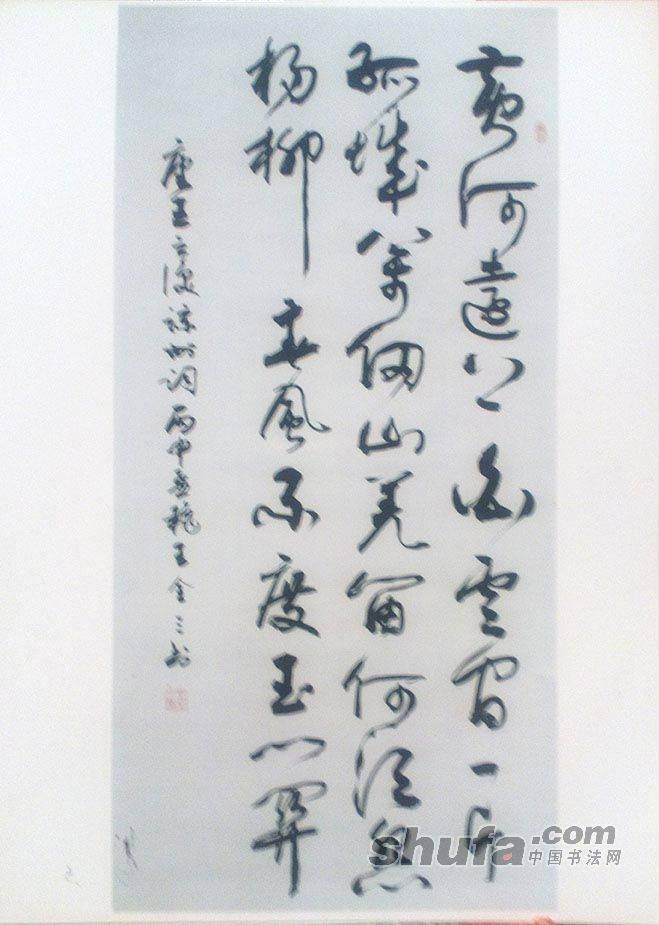 黄河遠上白雲间一片
孤城萬仞山羌笛何须怨
杨柳春风不度玉门関
唐王之涣凉州词丙申秋王金三书
shufa.com
中国书法网